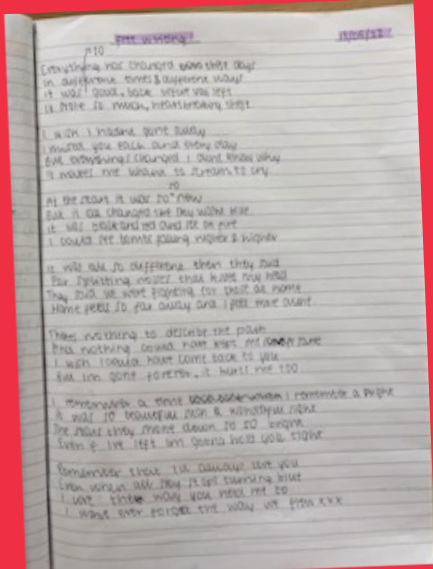 Free writing!
so
Everything has changed these days
in different times & different ways
it was good, back before you left
is more so much, heartbreaking theft.
I wish I hadnt gone away
I missed you each and every day
But everythings changed I dont know why
it makes me want to scream to cry
so
At the start it was so new
But it all changed the sky wasnt blue
it was and red and on fire
I could see bombs going higher & higher
It was all so different then they said
Ear splitting noises that hurt my head
They said we were fighting for those at home
Home feels so far away and I feel
Theres nothing to describe the pain
And nothing could have kept me sane
I wish I could have come back to you
But im gone forever, it hurts me too
I remember a time I remember a
it was so beautiful such a wonderful sight
The stars they shone down so so bright
Even if ive left im gonna hold you tight
Remember that I'll always love you
Even when the sky stops turning blue
I love the way you need me to
I wont ever forget the way we xxx